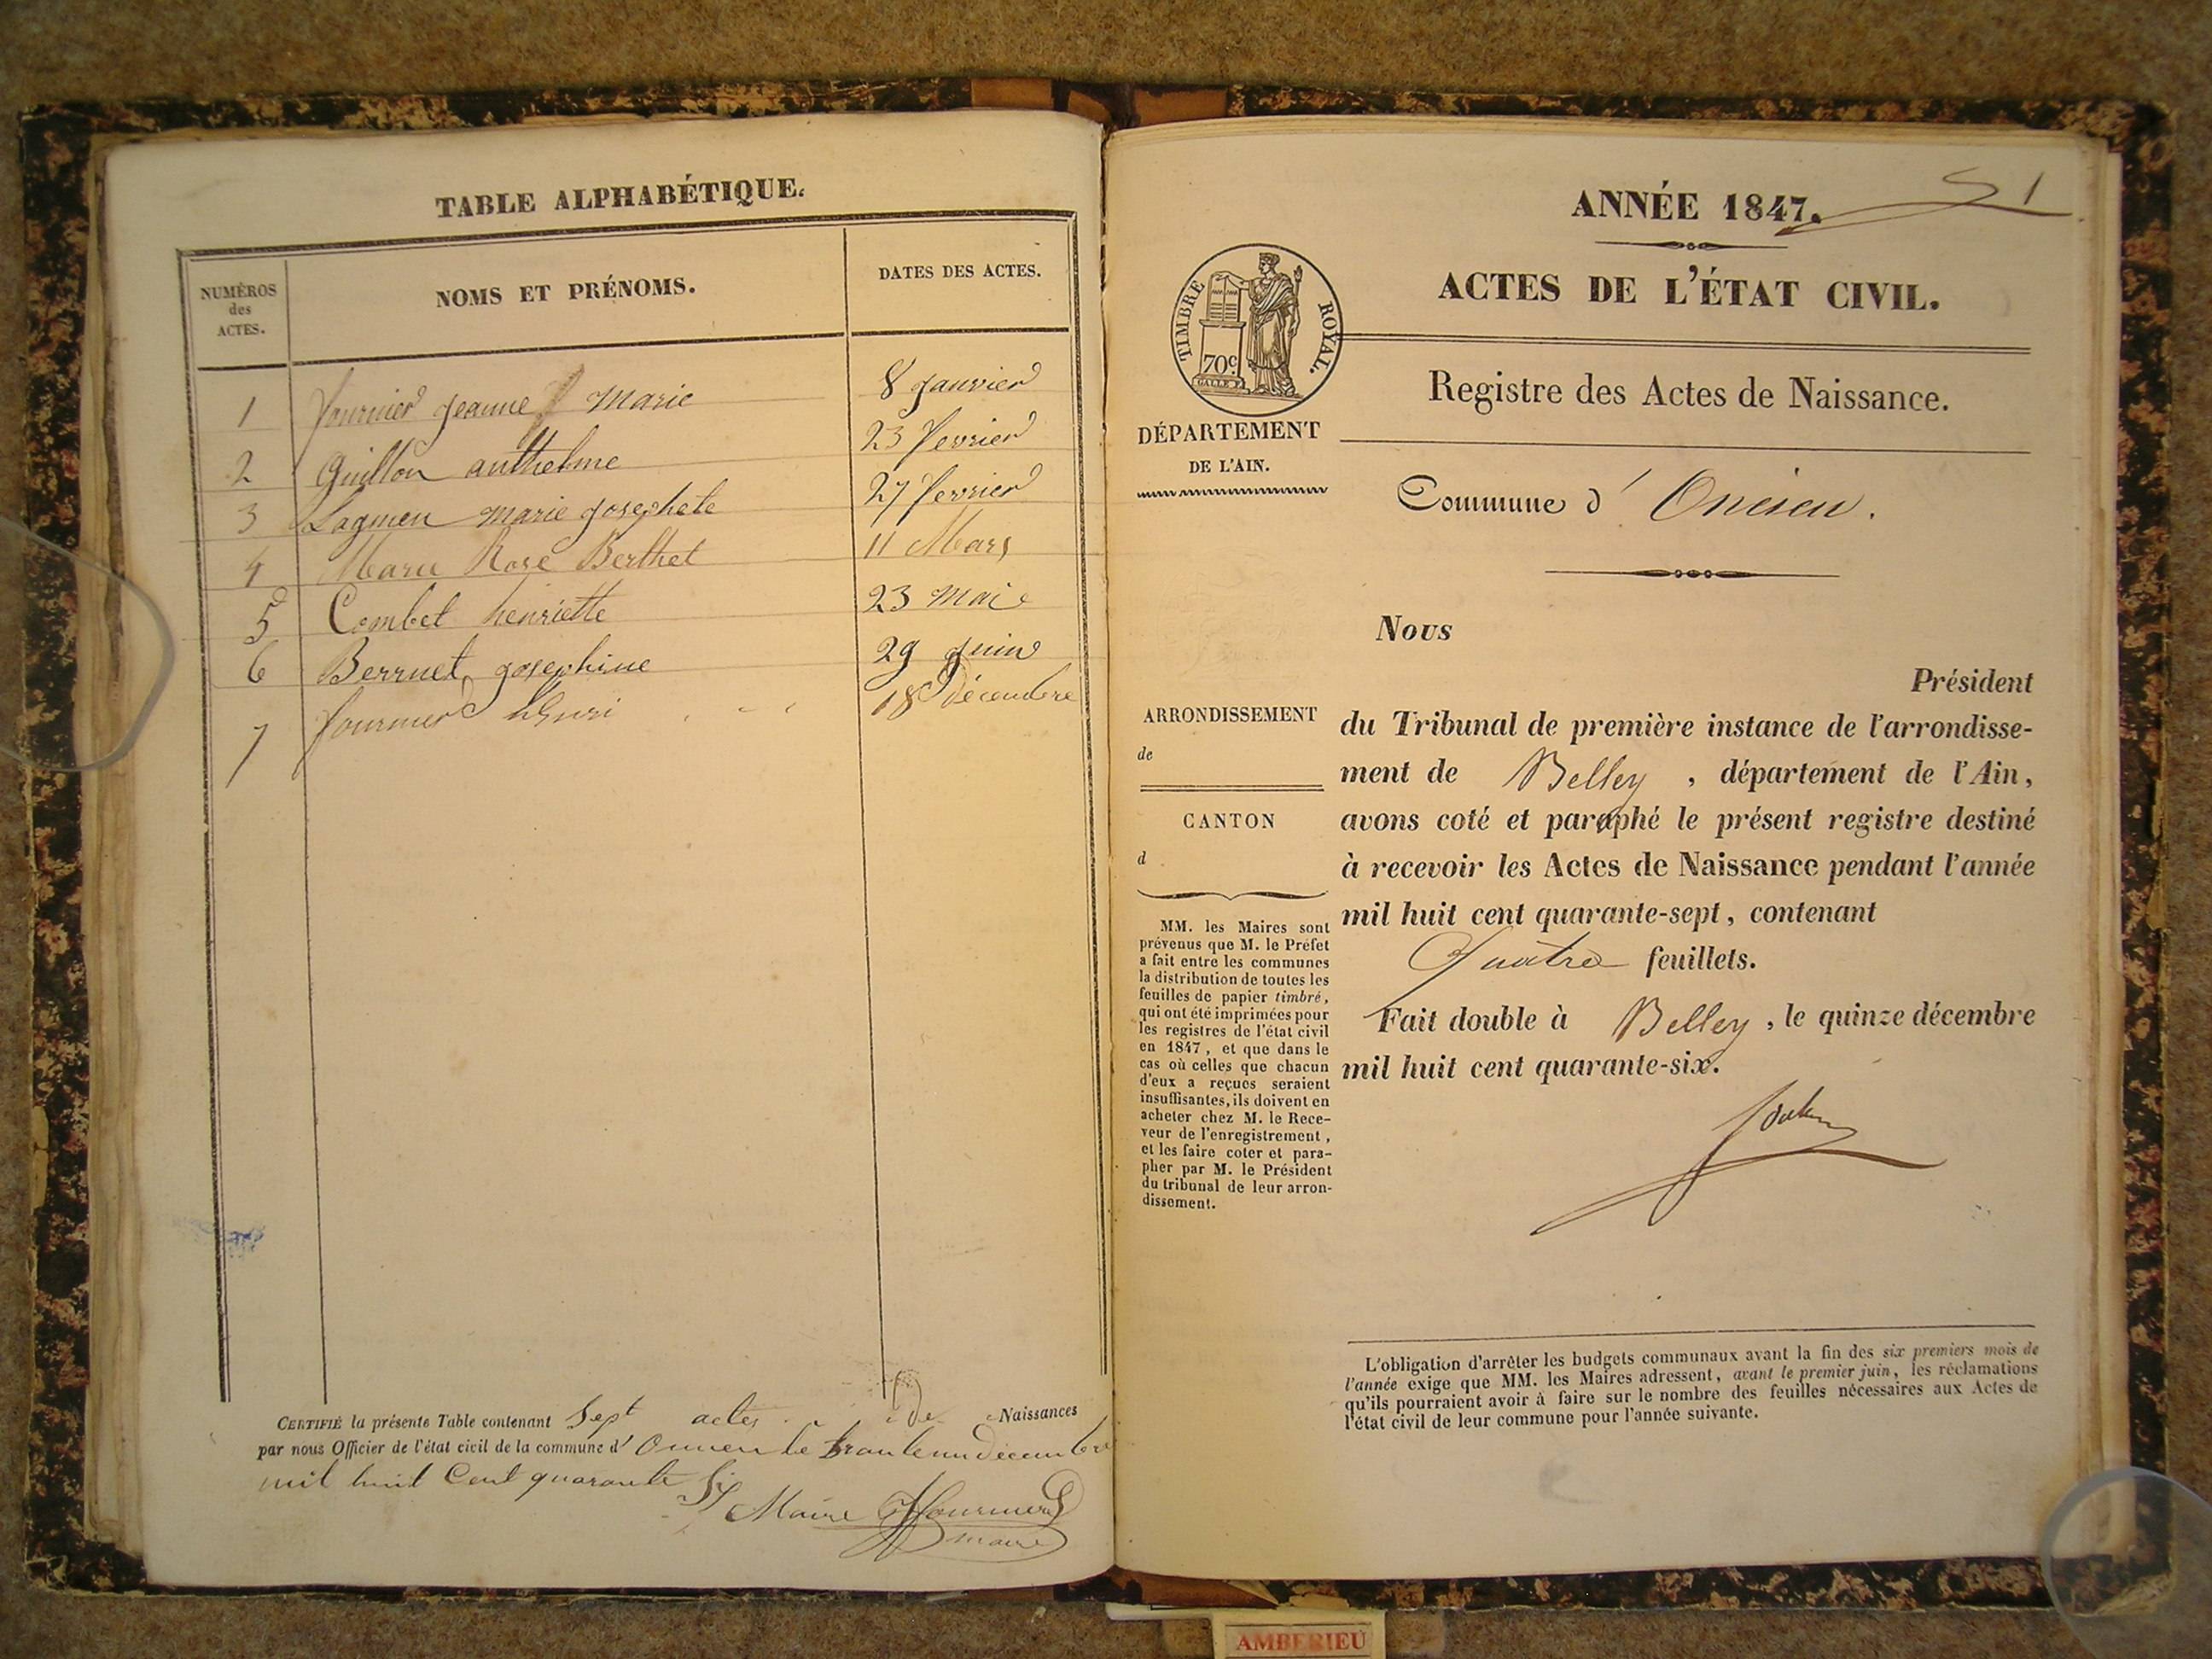 TABLE ALPHABÉTIQUE.
NUMÉROS
des
ACTES.
NOMS ET PRÉNOMS.
DATES DES ACTES.
1 fournier jeanne marie 8 janvier
2 Guillon anthelme 23 fevrier
3 Lagnieu marie josephete 27 fevrier
4 Marie Rose Berthet 11 Mars
5 Combet henriette 23 mai
6 Berrnet josephine 29 juin
7 fournier henri 18 décembre
CERTIFIÉ la présente Table contenant Sept actes de Naissances
par nous Officier de l'état civil de la commune d' Oncieu le trante un décembre
mil huit Cent quarante Six
Maire Fournier
maire
ANNÉE 1847. 1
ACTES DE L'ÉTAT CIVIL.
TIMBRE ROYAL.
70c
Registre des Actes de Naissance.
DÉPARTEMENT
DE L'AIN.
Commune d' Oncieu.
Nous
Président
du Tribunal de première instance de l'arrondisse-
ment de Belley, département de l'Ain,
avons coté et paraphé le présent registre destiné
à recevoir les Actes de Naissance pendant l'année
mil huit cent quarante-sept, contenant
Quatre feuillets.
Fait double à Belley, le quinze décembre
mil huit cent quarante-six.
ARRONDISSEMENT
de
CANTON
d
MM. les Maires sont
prévenus que M. le Préfet
a fait entre les communes
la distribution de toutes les
feuilles de papier timbré,
qui ont été imprimées pour
les registres de l'état civil
en 1847, et que dans le
cas où celles que chacun
d'eux a reçues seraient
insuffisantes, ils doivent en
acheter chez M. le Rece-
veur de l'enregistrement,
et les faire coter et para-
pher par M. le Président
du tribunal de leur arron-
dissement.
L'obligation d'arrêter les budgets communaux avant la fin des six premiers mois de
l'année exige que MM. les Maires adressent, avant le premier juin, les réclamations
qu'ils pourraient avoir à faire sur le nombre des feuilles nécessaires aux Actes de
l'état civil de leur commune pour l'année suivante.
AMBERIEU